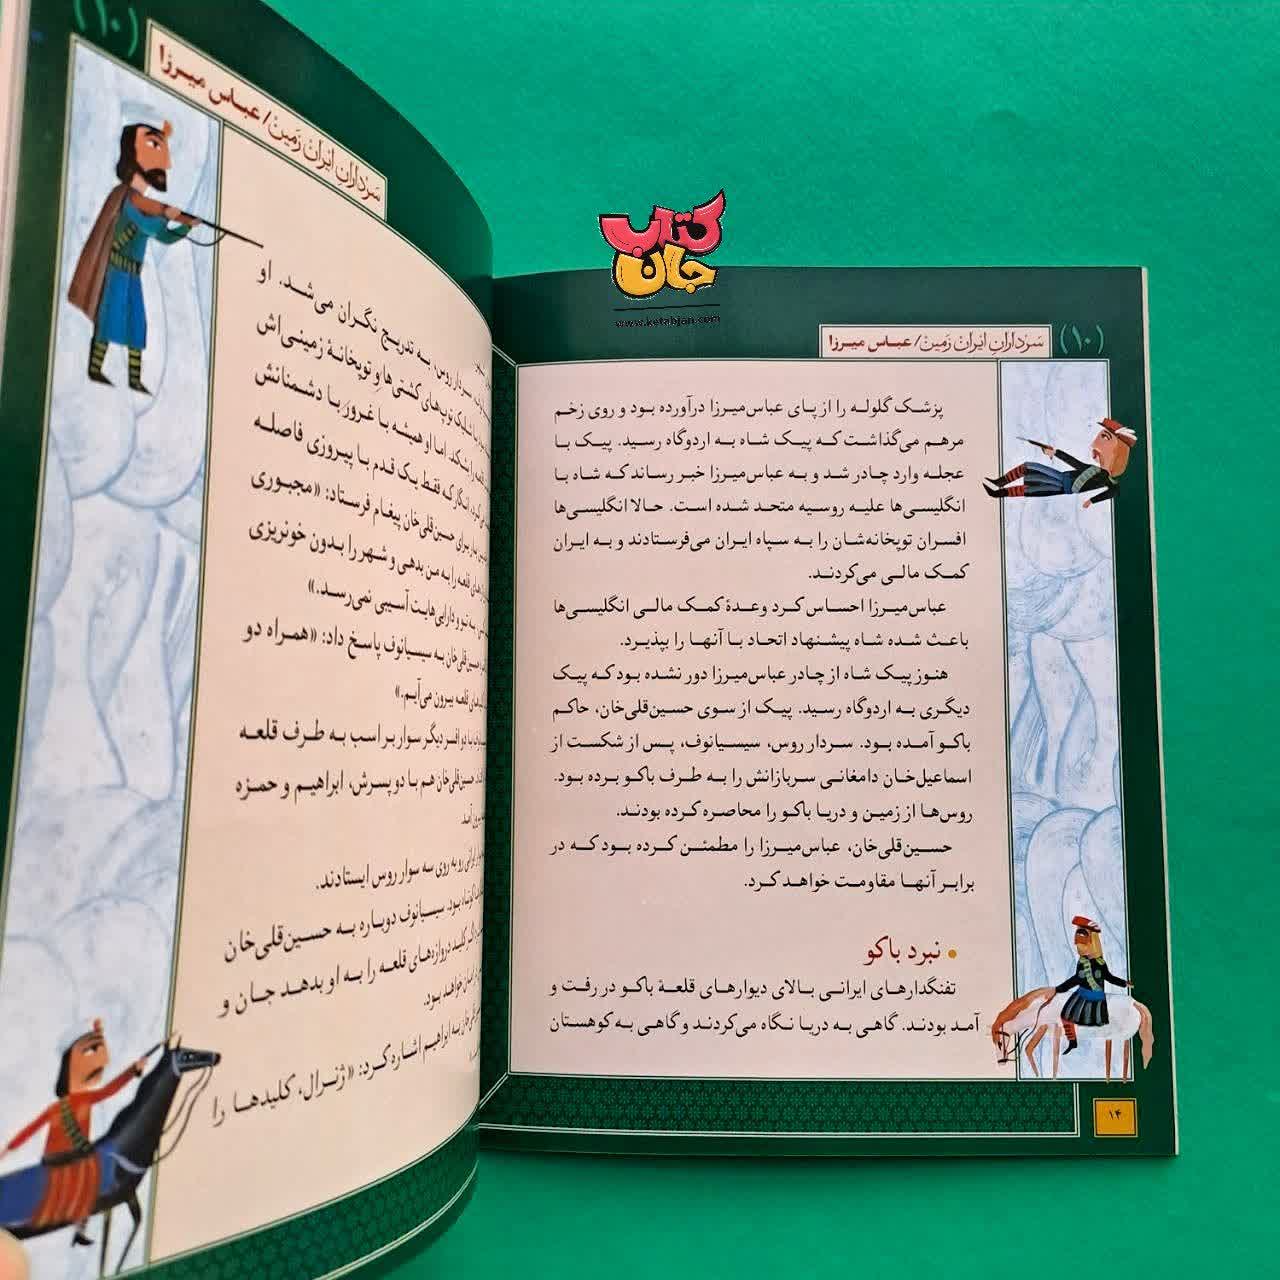 کتاب
جان
www.ketabjan.com
(۱۰)
سَردارانِ ایران زَمین/ عباس میرزا
پزشک گلوله را از پای عباس‌میرزا درآورده بود و روی زخم
مرهم می‌گذاشت که پیک شاه به اردوگاه رسید. پیک با
عجله وارد چادر شد و به عباس‌میرزا خبر رساند که شاه با
انگلیسی‌ها علیه روسیه متحد شده است. حالا انگلیسی‌ها
افسران توپخانه‌شان را به سپاه ایران می‌فرستادند و به ایران
کمک مالی می‌کردند.
عباس‌میرزا احساس کرد وعدهٔ کمک مالی انگلیسی‌ها
باعث شده شاه پیشنهاد اتحاد با آنها را بپذیرد.
هنوز پیک شاه از چادر عباس‌میرزا دور نشده بود که پیک
دیگری به اردوگاه رسید. پیک از سوی حسین‌قلی‌خان، حاکم
باکو آمده بود. سردار روس، سیسیانوف، پس از شکست از
اسماعیل‌خان دامغانی سربازانش را به طرف باکو برده بود.
روس‌ها از زمین و دریا باکو را محاصره کرده بودند.
حسین‌قلی‌خان، عباس‌میرزا را مطمئن کرده بود که در
برابر آنها مقاومت خواهد کرد.
• نبرد باکو
تفنگدارهای ایرانی بالای دیوارهای قلعهٔ باکو در رفت و
آمد بودند. گاهی به دریا نگاه می‌کردند و گاهی به کوهستان
۱۴
(۱۰)
سَردارانِ ایران زَمین/ عباس میرزا
سردار روس، به تدریج نگران می‌شد. او
شلیک توپ‌های کشتی‌ها و توپخانهٔ زمینی‌اش
را بشکند، اما او همیشه با غرور با دشمنانش
انگار که فقط یک قدم با پیروزی فاصله
برای حسین‌قلی‌خان پیغام فرستاد: «مجبوری
قلعه را به من بدهی و شهر را بدون خونریزی
به تو و دارایی‌هایت آسیبی نمی‌رسد.»
حسین‌قلی‌خان به سیسیانوف پاسخ داد: «همراه دو
قلعه بیرون می‌آیم.»
با دو افسر دیگر سوار بر اسب به طرف قلعه
حسین‌قلی‌خان هم با دو پسرش، ابراهیم و حمزه
ایرانی رو به روی سه سوار روس ایستادند.
بود. سیسیانوف دوباره به حسین‌قلی‌خان
کلید دروازه‌های قلعه را به او بدهد جان و
خواهد بود.
به ابراهیم اشاره کرد: «ژنرال، کلیدها را